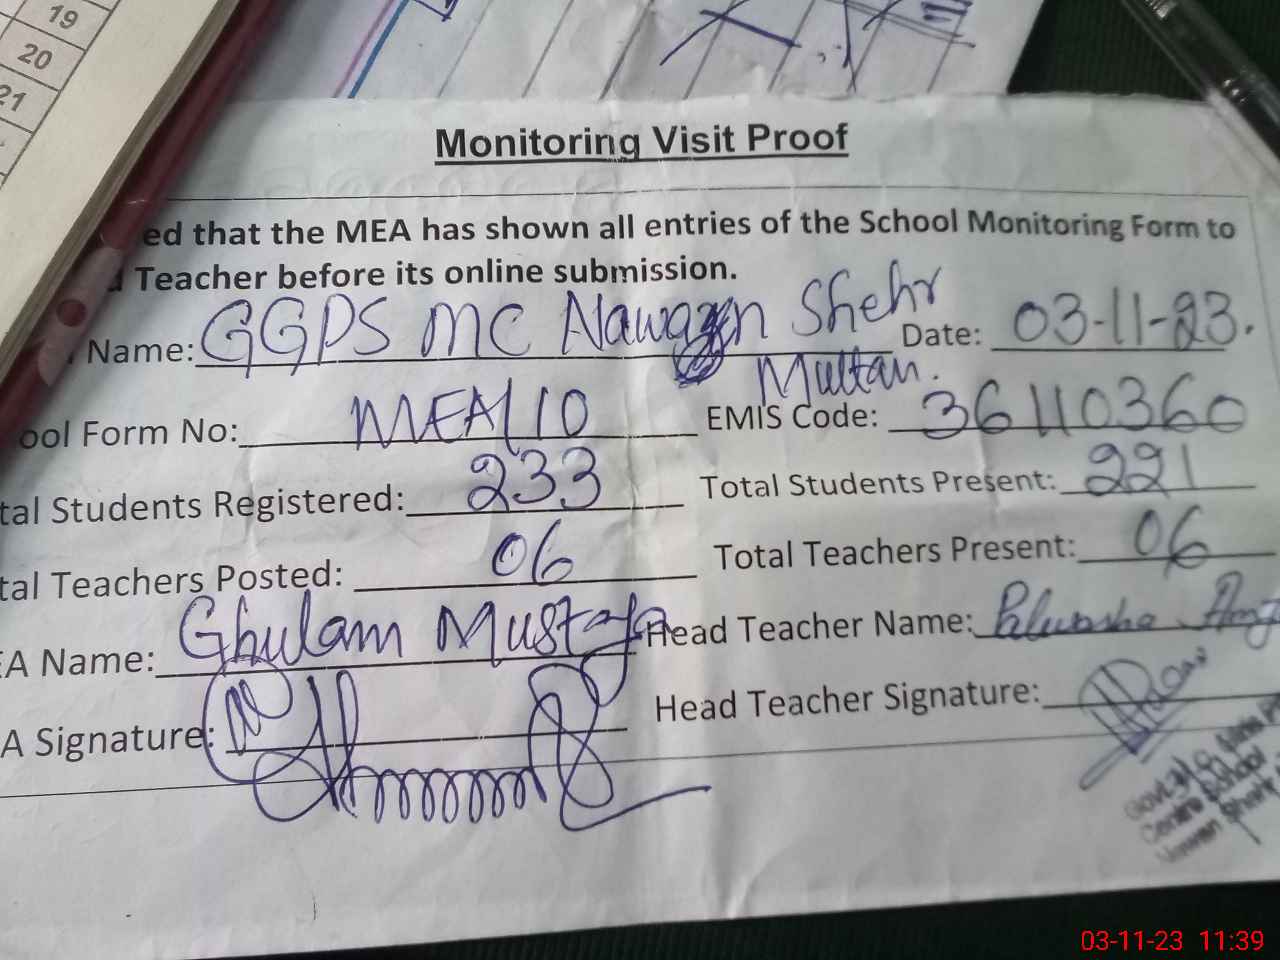 19
20
21
Monitoring Visit Proof
ed that the MEA has shown all entries of the School Monitoring Form to
d Teacher before its online submission.
Name: GGPS MC Nawagn Shehr Multan. Date: 03-11-23.
ool Form No: MEA/10 EMIS Code: 36110360
tal Students Registered: 233 Total Students Present: 221
tal Teachers Posted: 06 Total Teachers Present: 06
EA Name: Ghulam Mustafa Head Teacher Name: Palwasha
A Signature: Head Teacher Signature:
School
03-11-23 11:39